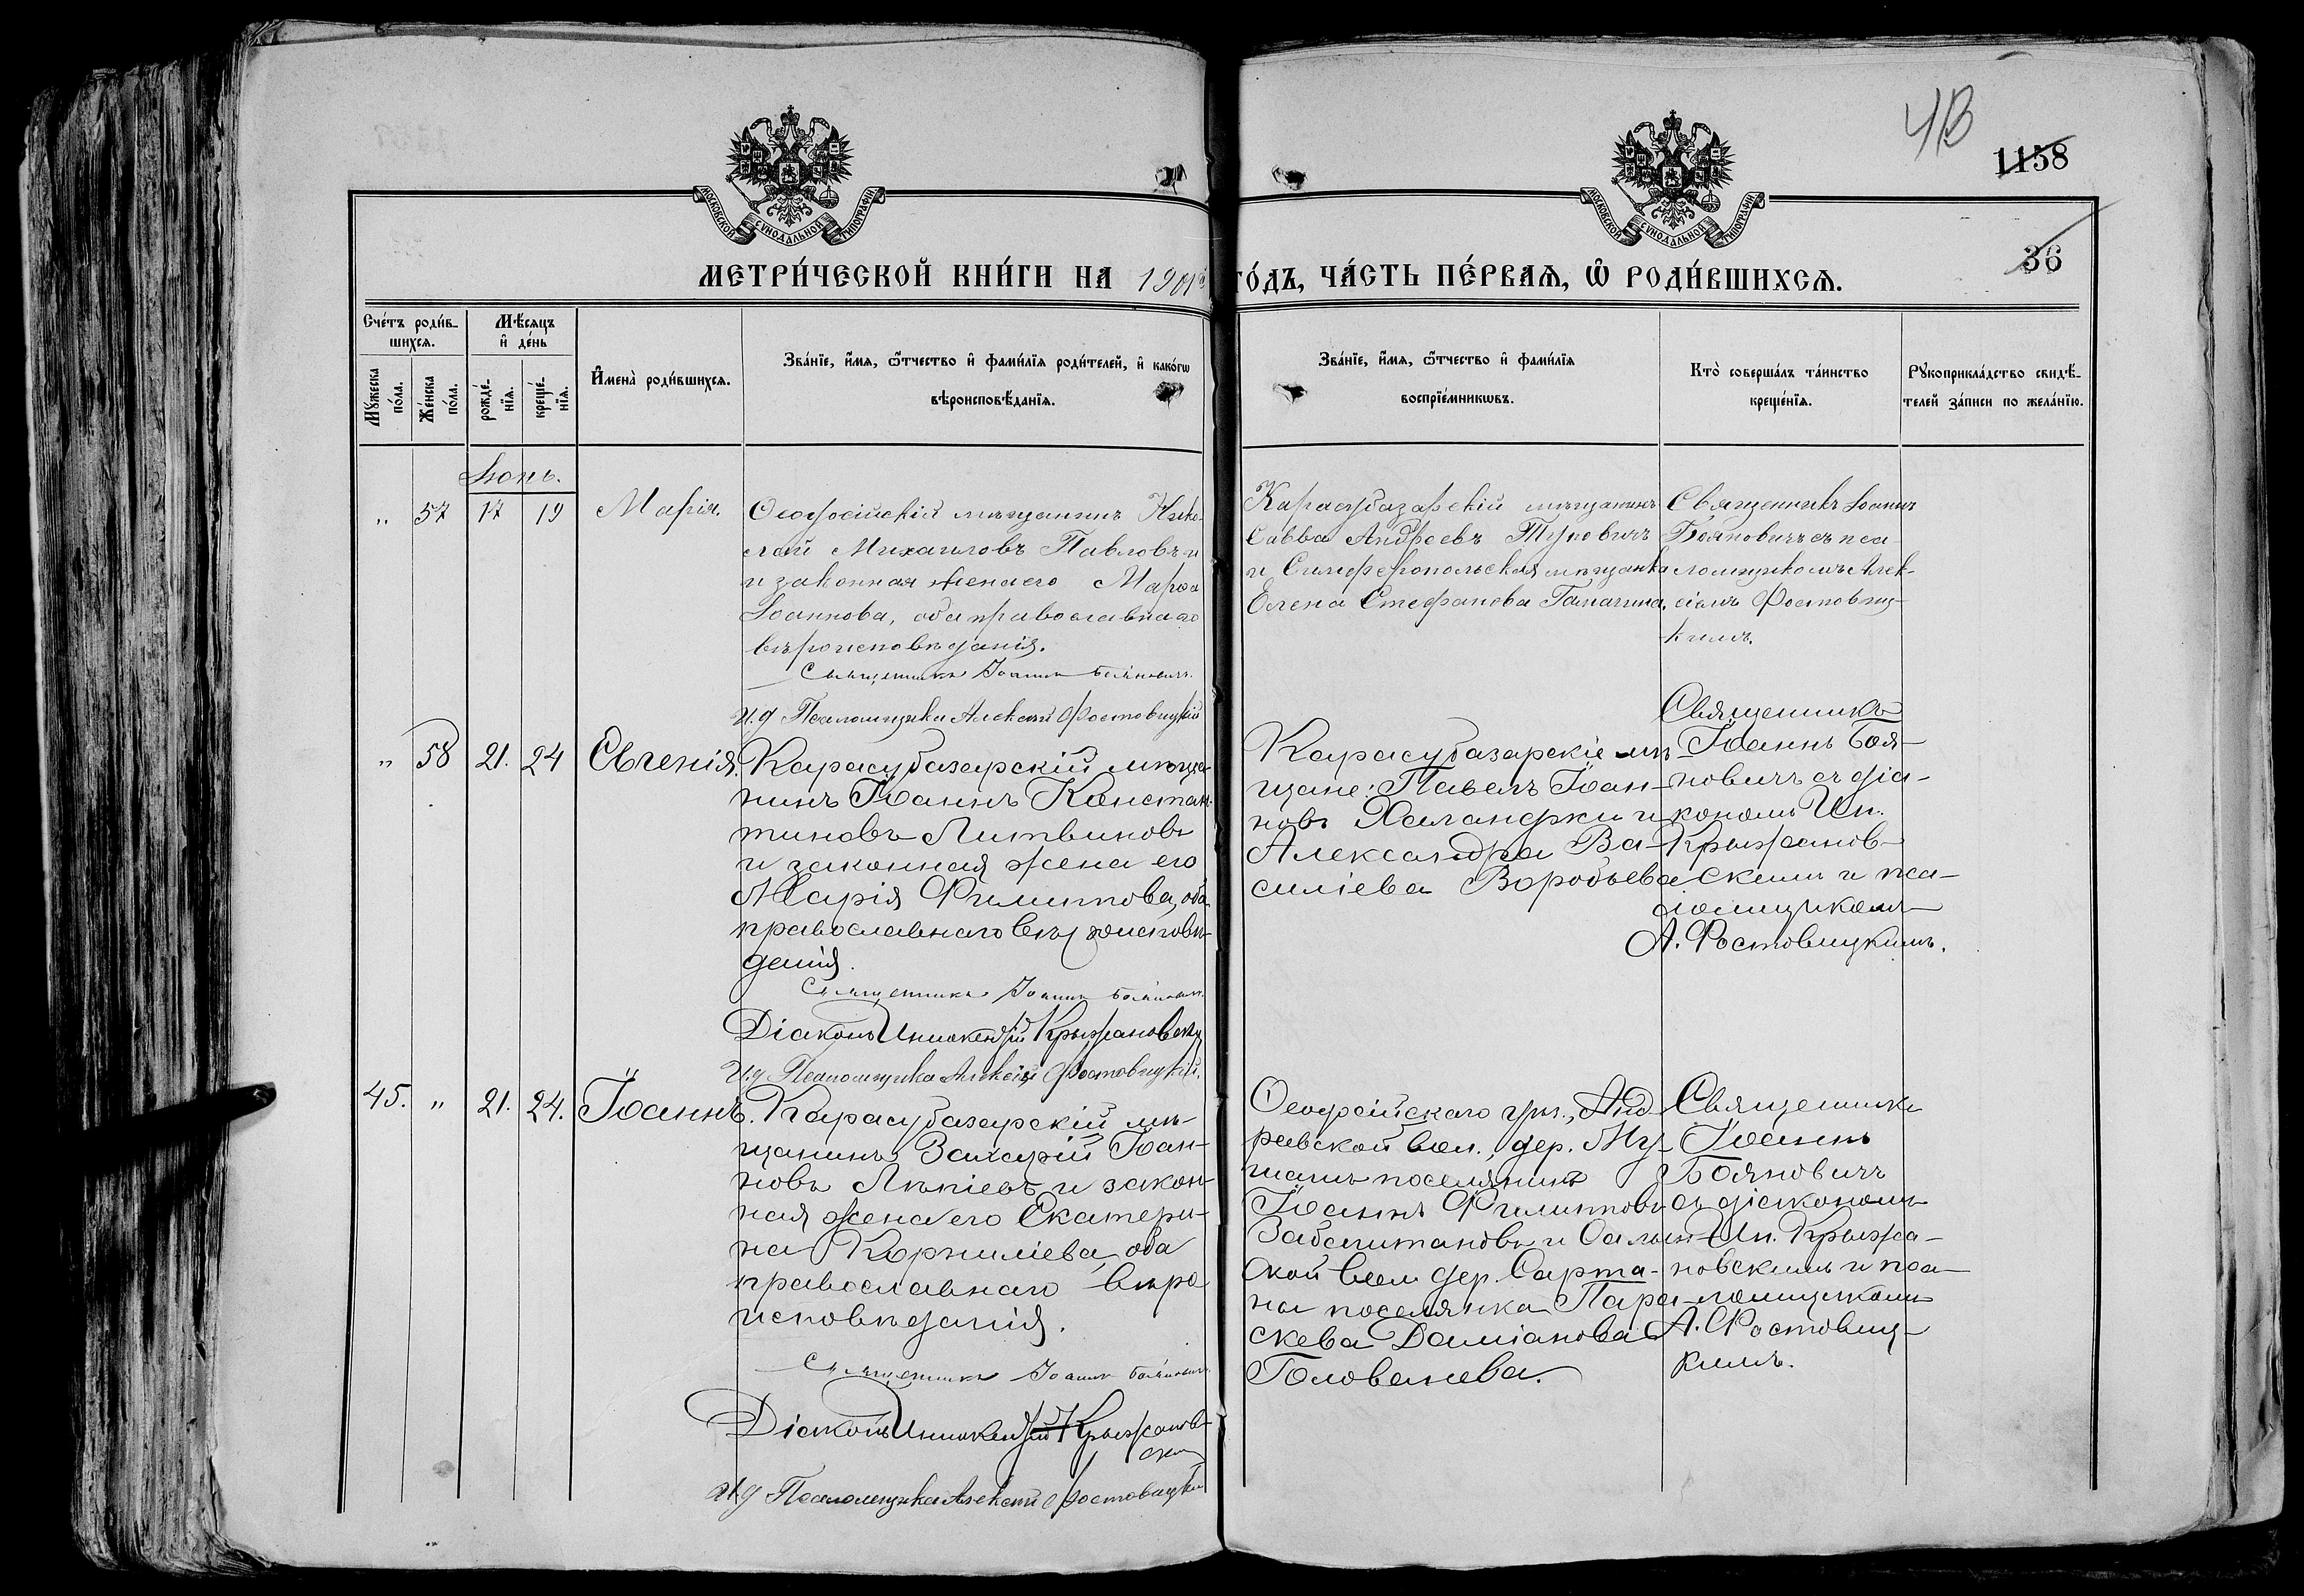 43
1158
36
МОСКОВСКОЙ СѴНОДАЛЬНОЙ ТИПОГРАФІИ
МОСКОВСКОЙ СѴНОДАЛЬНОЙ ТИПОГРАФІИ
МЕТРИ́ЧЕСКОЙ КНИ́ГИ НА 1901й ГО́ДЪ, ЧА́СТЬ ПЕ́РВАѦ, Ѡ҆ РОДИ́ВШИХСѦ.
Сче́тъ роди́в-
шихсѧ.
Мꙋ́жеска
по́ла.
Же́нска
по́ла.
Мѣ́сѧцъ
и҆ де́нь
рожде́-
нїѧ.
креще́-
нїѧ.
И҆мена̀ роди́вшихсѧ.
Зва́нїе, и҆́мѧ, ѻ҆́тчество и҆ фами́лїѧ роди́телей, и҆ како́гѡ
вѣроисповѣ́данїѧ.
Зва́нїе, и҆́мѧ, ѻ҆́тчество и҆ фами́лїѧ
воспрїе́мникѡвъ.
Кто̀ соверша́лъ та́инство
креще́нїѧ.
Рꙋкоприкла́дство свидѣ́-
телей за́писи по жела́нїю.
Іюнь.
" 57 17 19 Марія.
Ѳеодосійскій мѣщанинъ Нико-
лай Михаиловъ Павловъ и
и законная жена его Марѳа
Іоаннова, оба православнаго
вѣроисповѣданія.
Священникъ Іоаннъ Бояновичъ.
И.д Псаломщика Алексій Ростовицкій
Карасубазарскій мѣщанинъ
Савва Андреевъ Туповичъ
и Симферопольская мѣщанка
Елена Стефанова
Священникъ Іоаннъ
Бояновичъ съ пса-
ломщикомъ Алек-
сіемъ Ростовиц-
кимъ.
" 58 21. 24 Евгенія.
Карасубазарскій мѣща-
нинъ Іоаннъ Констан-
тиновъ Литвиновъ
и законная жена его
Марія Филиппова, оба
православнаго вѣроисповѣ-
данія.
Священникъ Іоаннъ Бояновичъ.
Діаконъ Иннокентій Крыжановскій
И.д Псаломщика Алексій Ростовицкій.
Карасубазарскіе мѣ-
щане: Павелъ Іоан-
новъ Халанджи и
Александра Ва-
силіева Воробьева
Священникъ
Іоаннъ Боя-
новичъ съ діа-
кономъ Ин.
Крыжанов-
скимъ и пса-
ломщикомъ
А. Ростовицкимъ.
45. " 21. 24. Іоаннъ.
Карасубазарскій мѣ-
щанинъ Захарій Іоан-
новъ Лѣпіевъ и закон-
ная жена его Екатери-
на Корниліева, оба
православнаго вѣро-
исповѣданія.
Священникъ Іоаннъ Бояновичъ.
Діаконъ Иннокентій Крыжанов-
скій
И.д Псаломщика Алексій Ростовицкій
Ѳеодосійскаго уѣз., Анд-
реевской вол., дер.
поселянинъ
Іоаннъ Филипповъ
и
ской вол. дер. Сарта-
на поселянка Пара-
скева Даміанова
Голованева.
Священникъ
Іоаннъ
Бояновичъ
съ діакономъ
Ин. Крыжа-
новскимъ и пса-
ломщикомъ
А. Ростовиц-
кимъ.